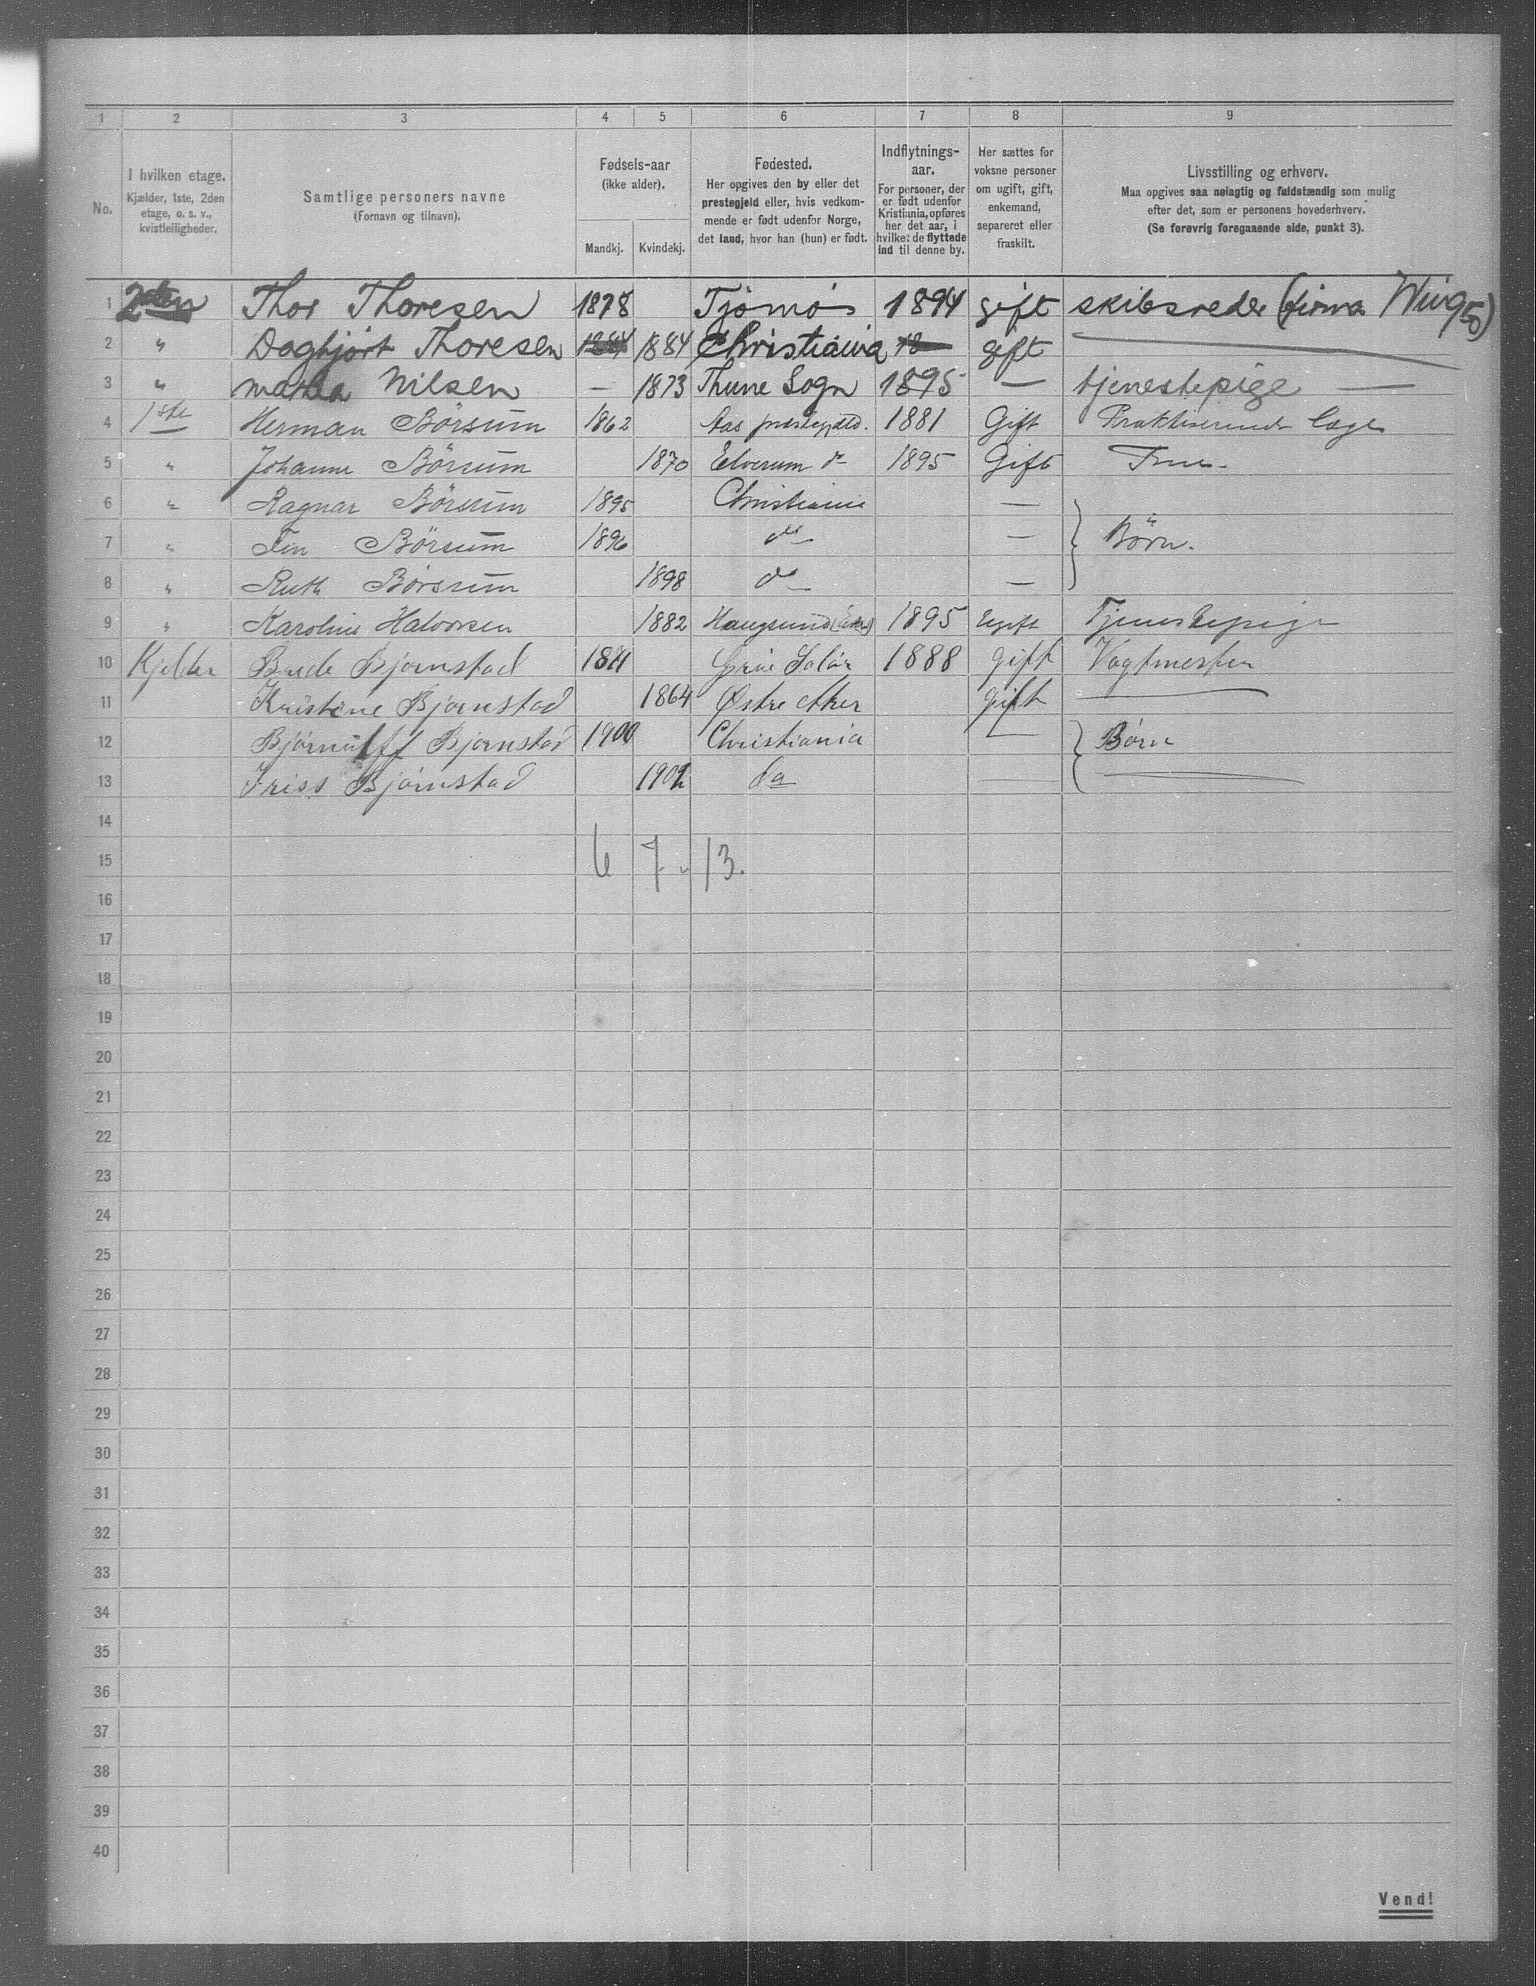 1 2 3 4 5 6 7 8 9
No.
I hvilken etage.
Kjælder, 1ste, 2den
etage, o. s. v.,
kvistleiligheder.
Samtlige personers navne
(Fornavn og tilnavn).
Fødsels-aar
(ikke alder).
Mandkj. Kvindekj.
Fødested.
Her opgives den by eller det
prestegjeld eller, hvis vedkom-
mende er født udenfor Norge,
det land, hvor han (hun) er født.
Indflytnings-
aar.
For personer, der
er født udenfor
Kristiania, opføres
her det aar, i
hvilket de flyttede
ind til denne by.
Her sættes for
voksne personer
om ugift, gift,
enkemand,
separeret eller
fraskilt.
Livsstilling og erhverv.
Maa opgives saa nøiagtig og fuldstændig som mulig
efter det, som er personens hovederhverv.
(Se forøvrig foregaaende side, punkt 3).
1 2den Thor Thoresen 1878 Tjømø 1894 gift skibsreder (firma
2 " Dagbjört Thoresen 1884 1884 Christiania 18 gift
3 " Nilsen — 1873 Thune Sogn 1895 — tjenestepige —
4 1ste Herman Börsum 1862 Aas prestegjeld. 1881 Gift Praktiserende Læge
5 " Johanne Börsum 1870 Elverum d° 1895 Gift Frue.
6 " Ragnar Börsum 1895 Christiania —
7 " Fin Börsum 1896 do — Børn.
8 " Ruth Börsum 1898 do —
9 " Karoline Halvorsen 1882 Haugsund 1895 Ugift Tjenestepige
10 Kjelder Bjørnstad Grue Solör 1888 gift Vagtmester
11 Kristine Bjørnstad 1864 Østre Aker gift
12 Bjørnulff Bjørnstad 1900 Christiania — Børn
13 Friss Bjørnstad 1902 do —
14
15 6 7 - 13.
16
17
18
19
20
21
22
23
24
25
26
27
28
29
30
31
32
33
34
35
36
37
38
39
40
Vend!